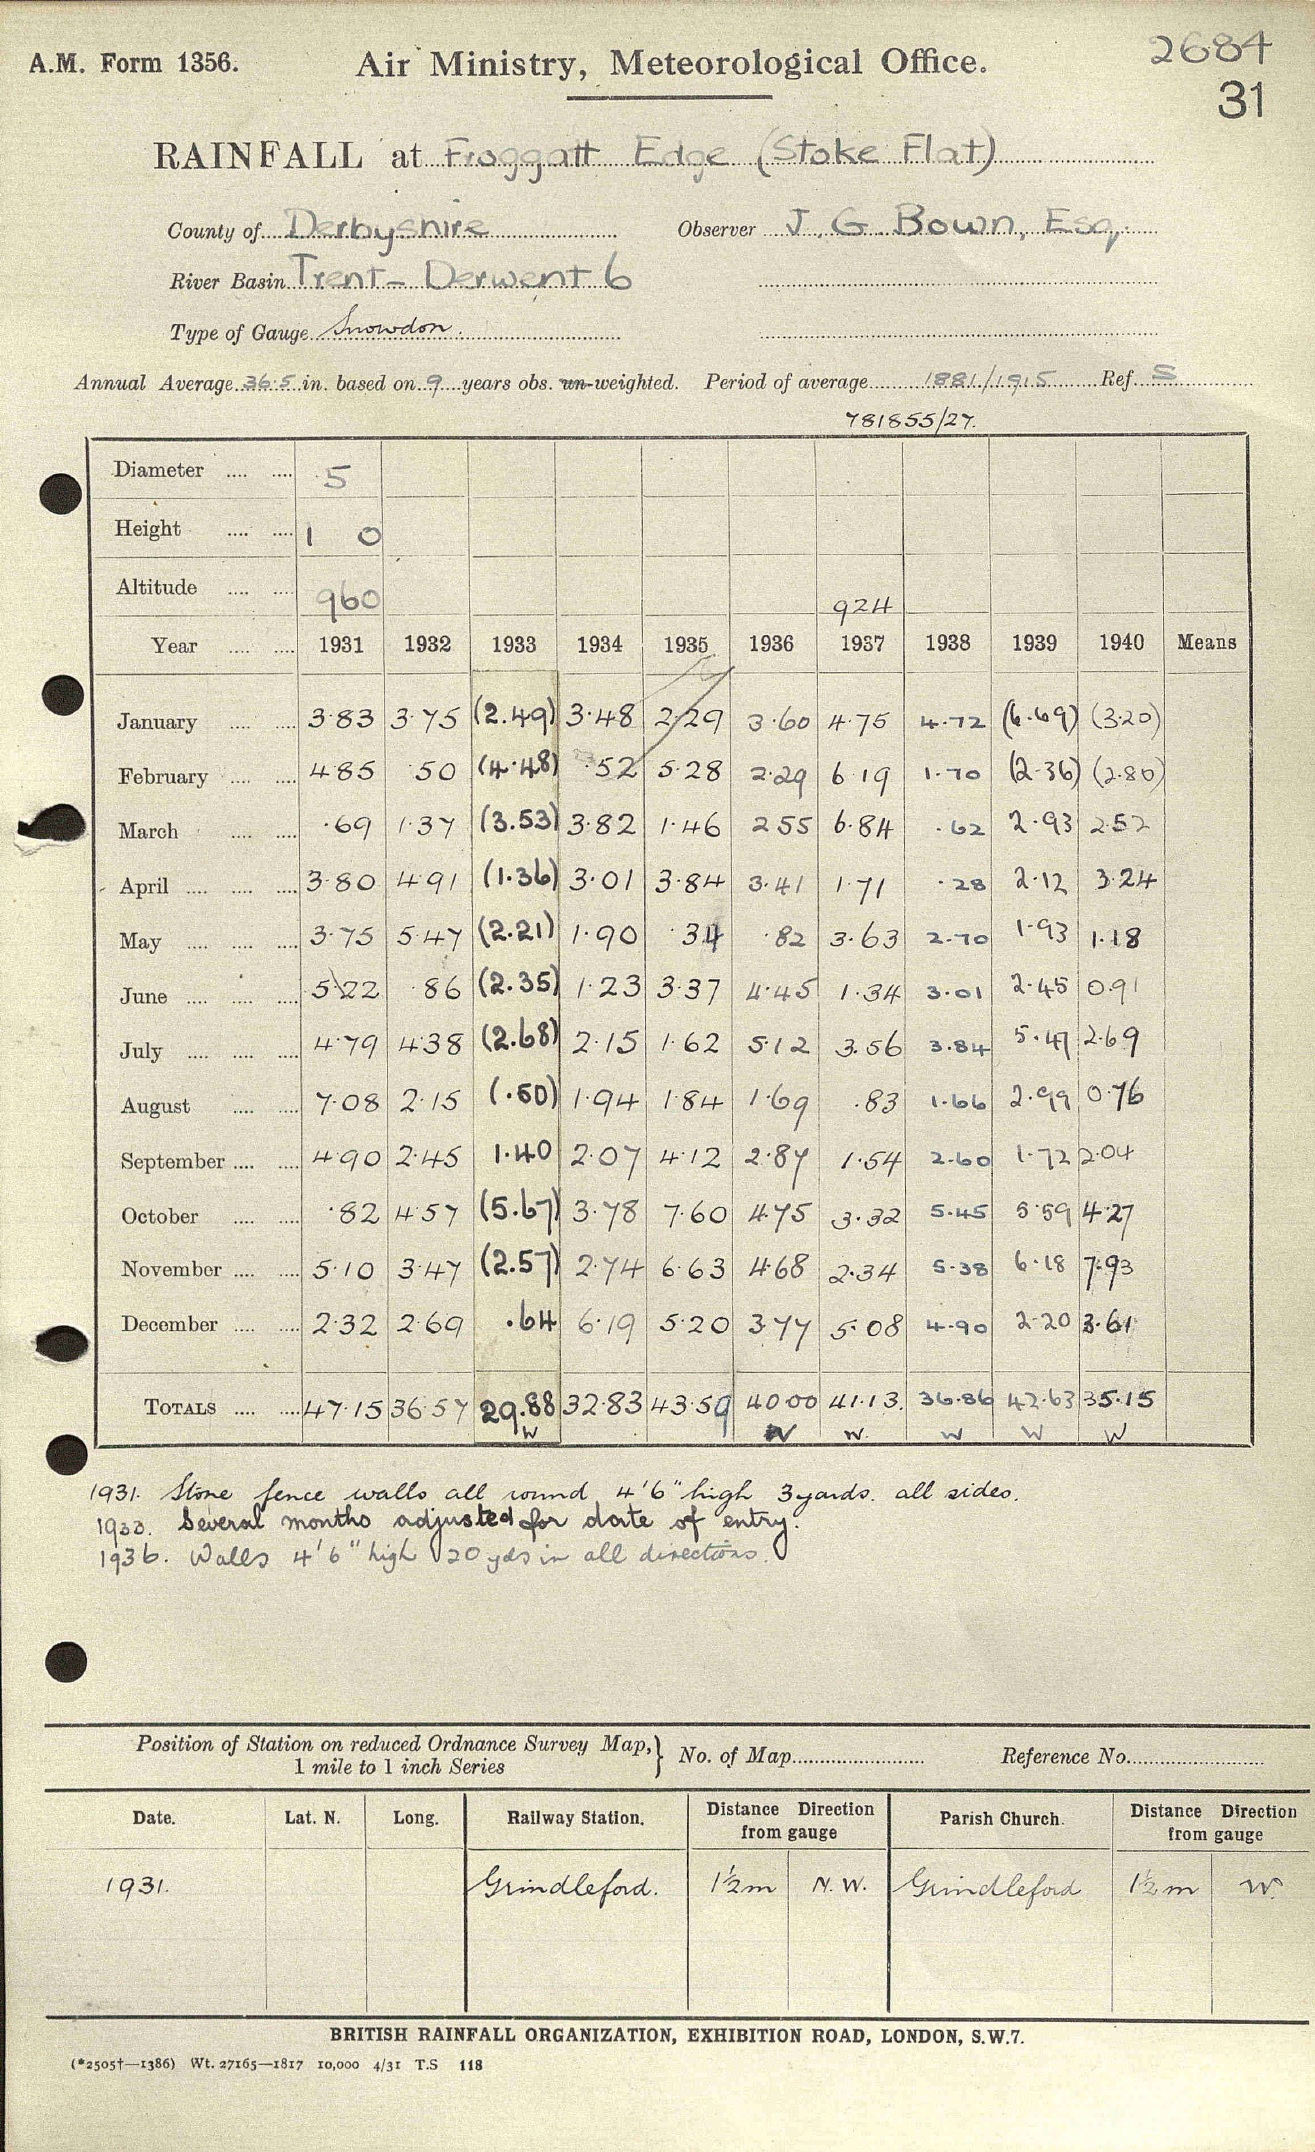 A.M. Form 1356. Air Ministry, Meteorological Office. 2684
31
RAINFALL at Froggatt Edge (Stoke Flat)
County of Derbyshire Observer J. G. Bown, Esq.
River Basin Trent - Derwent 6
Type of Gauge Snowdon.
Annual Average 36.5 in. based on 9 years obs. un-weighted. Period of average 1881/1915 Ref. S
781855/27.
Diameter 5
Height 1 0
Altitude 960 924
Year 1931 1932 1933 1934 1935 1936 1937 1938 1939 1940 Means
January 3.83 3.75 (2.49) 3.48 2.29 3.60 4.75 4.72 (6.69) (3.20)
February 4.85 .50 (4.48) .52 5.28 2.29 6.19 1.70 (2.36) (2.80)
March .69 1.37 (3.53) 3.82 1.46 2.55 6.84 .62 2.93 2.52
April 3.80 4.91 (1.36) 3.01 3.84 3.41 1.71 .28 2.12 3.24
May 3.75 5.47 (2.21) 1.90 .34 .82 3.63 2.70 1.93 1.18
June 5.22 .86 (2.35) 1.23 3.37 4.45 1.34 3.01 2.45 0.91
July 4.79 4.38 (2.68) 2.15 1.62 5.12 3.56 3.84 5.47 2.69
August 7.08 2.15 (.50) 1.94 1.84 1.69 .83 1.66 2.99 0.76
September 4.90 2.45 1.40 2.07 4.12 2.87 1.54 2.60 1.72 2.04
October .82 4.57 (5.67) 3.78 7.60 4.75 3.32 5.45 5.59 4.27
November 5.10 3.47 (2.57) 2.74 6.63 4.68 2.34 5.38 6.18 7.93
December 2.32 2.69 .64 6.19 5.20 3.77 5.08 4.90 2.20 3.61
TOTALS 47.15 36.57 29.88 32.83 43.59 40.00 41.13. 36.86 42.63 35.15
W W W. W W W
1931. Stone fence walls all round 4'6" high 3 yards. all sides.
1933. Several months adjusted for date of entry.
1936. Walls 4'6" high 20 yds in all directions.
Position of Station on reduced Ordnance Survey Map, 1 mile to 1 inch Series } No. of Map Reference No.
Date. Lat. N. Long. Railway Station. Distance Direction from gauge Parish Church. Distance Direction from gauge
1931. Grindleford. 1½m N.W. Grindleford 1½m W.
BRITISH RAINFALL ORGANIZATION, EXHIBITION ROAD, LONDON, S.W.7.
(*2505†—1386) Wt. 27165—1817 10,000 4/31 T.S 118